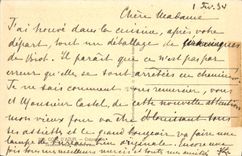 1 Fév. 34
Chère Madame
J'ai trouvé dans la cuisine, après votre
départ, tout un déballage de
de Biot. Il paraît que ce n'est pas par
erreur qu'elles se sont arrêtées en chemin.
Je ne sais comment vous remercier, vous
et Monsieur Castel, de cette nouvelle attention
mon vieux pour va être
les assiettes et le grand va faire une
lampe de bien originale. Encore une
fois tous mes meilleurs mercis, et toute mon amitié